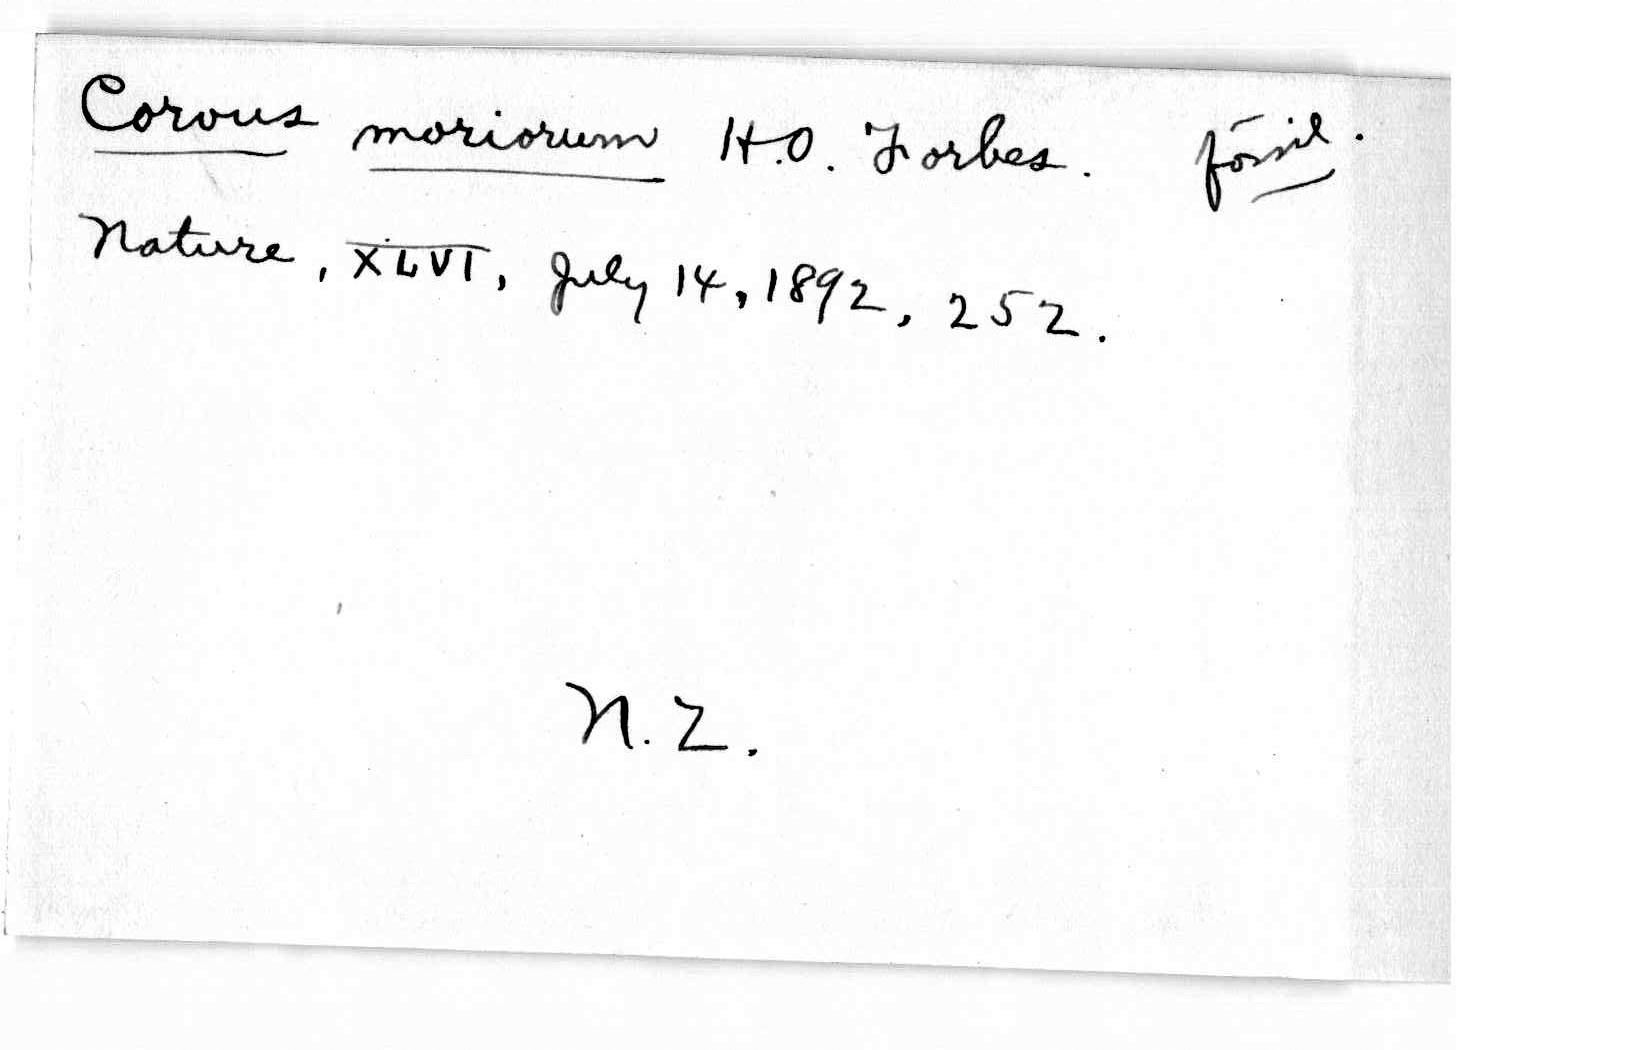 Corvus moriorum H.O. Forbes. fossil.
Nature, XLVI, July 14, 1892, 252.
N.Z.